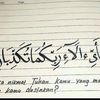 فَبِأَيِّ آلَاءِ رَبِّكُمَا تُكَذِّبَانِ
nikmat Tuhan kamu yang ma
kamu dustakan?